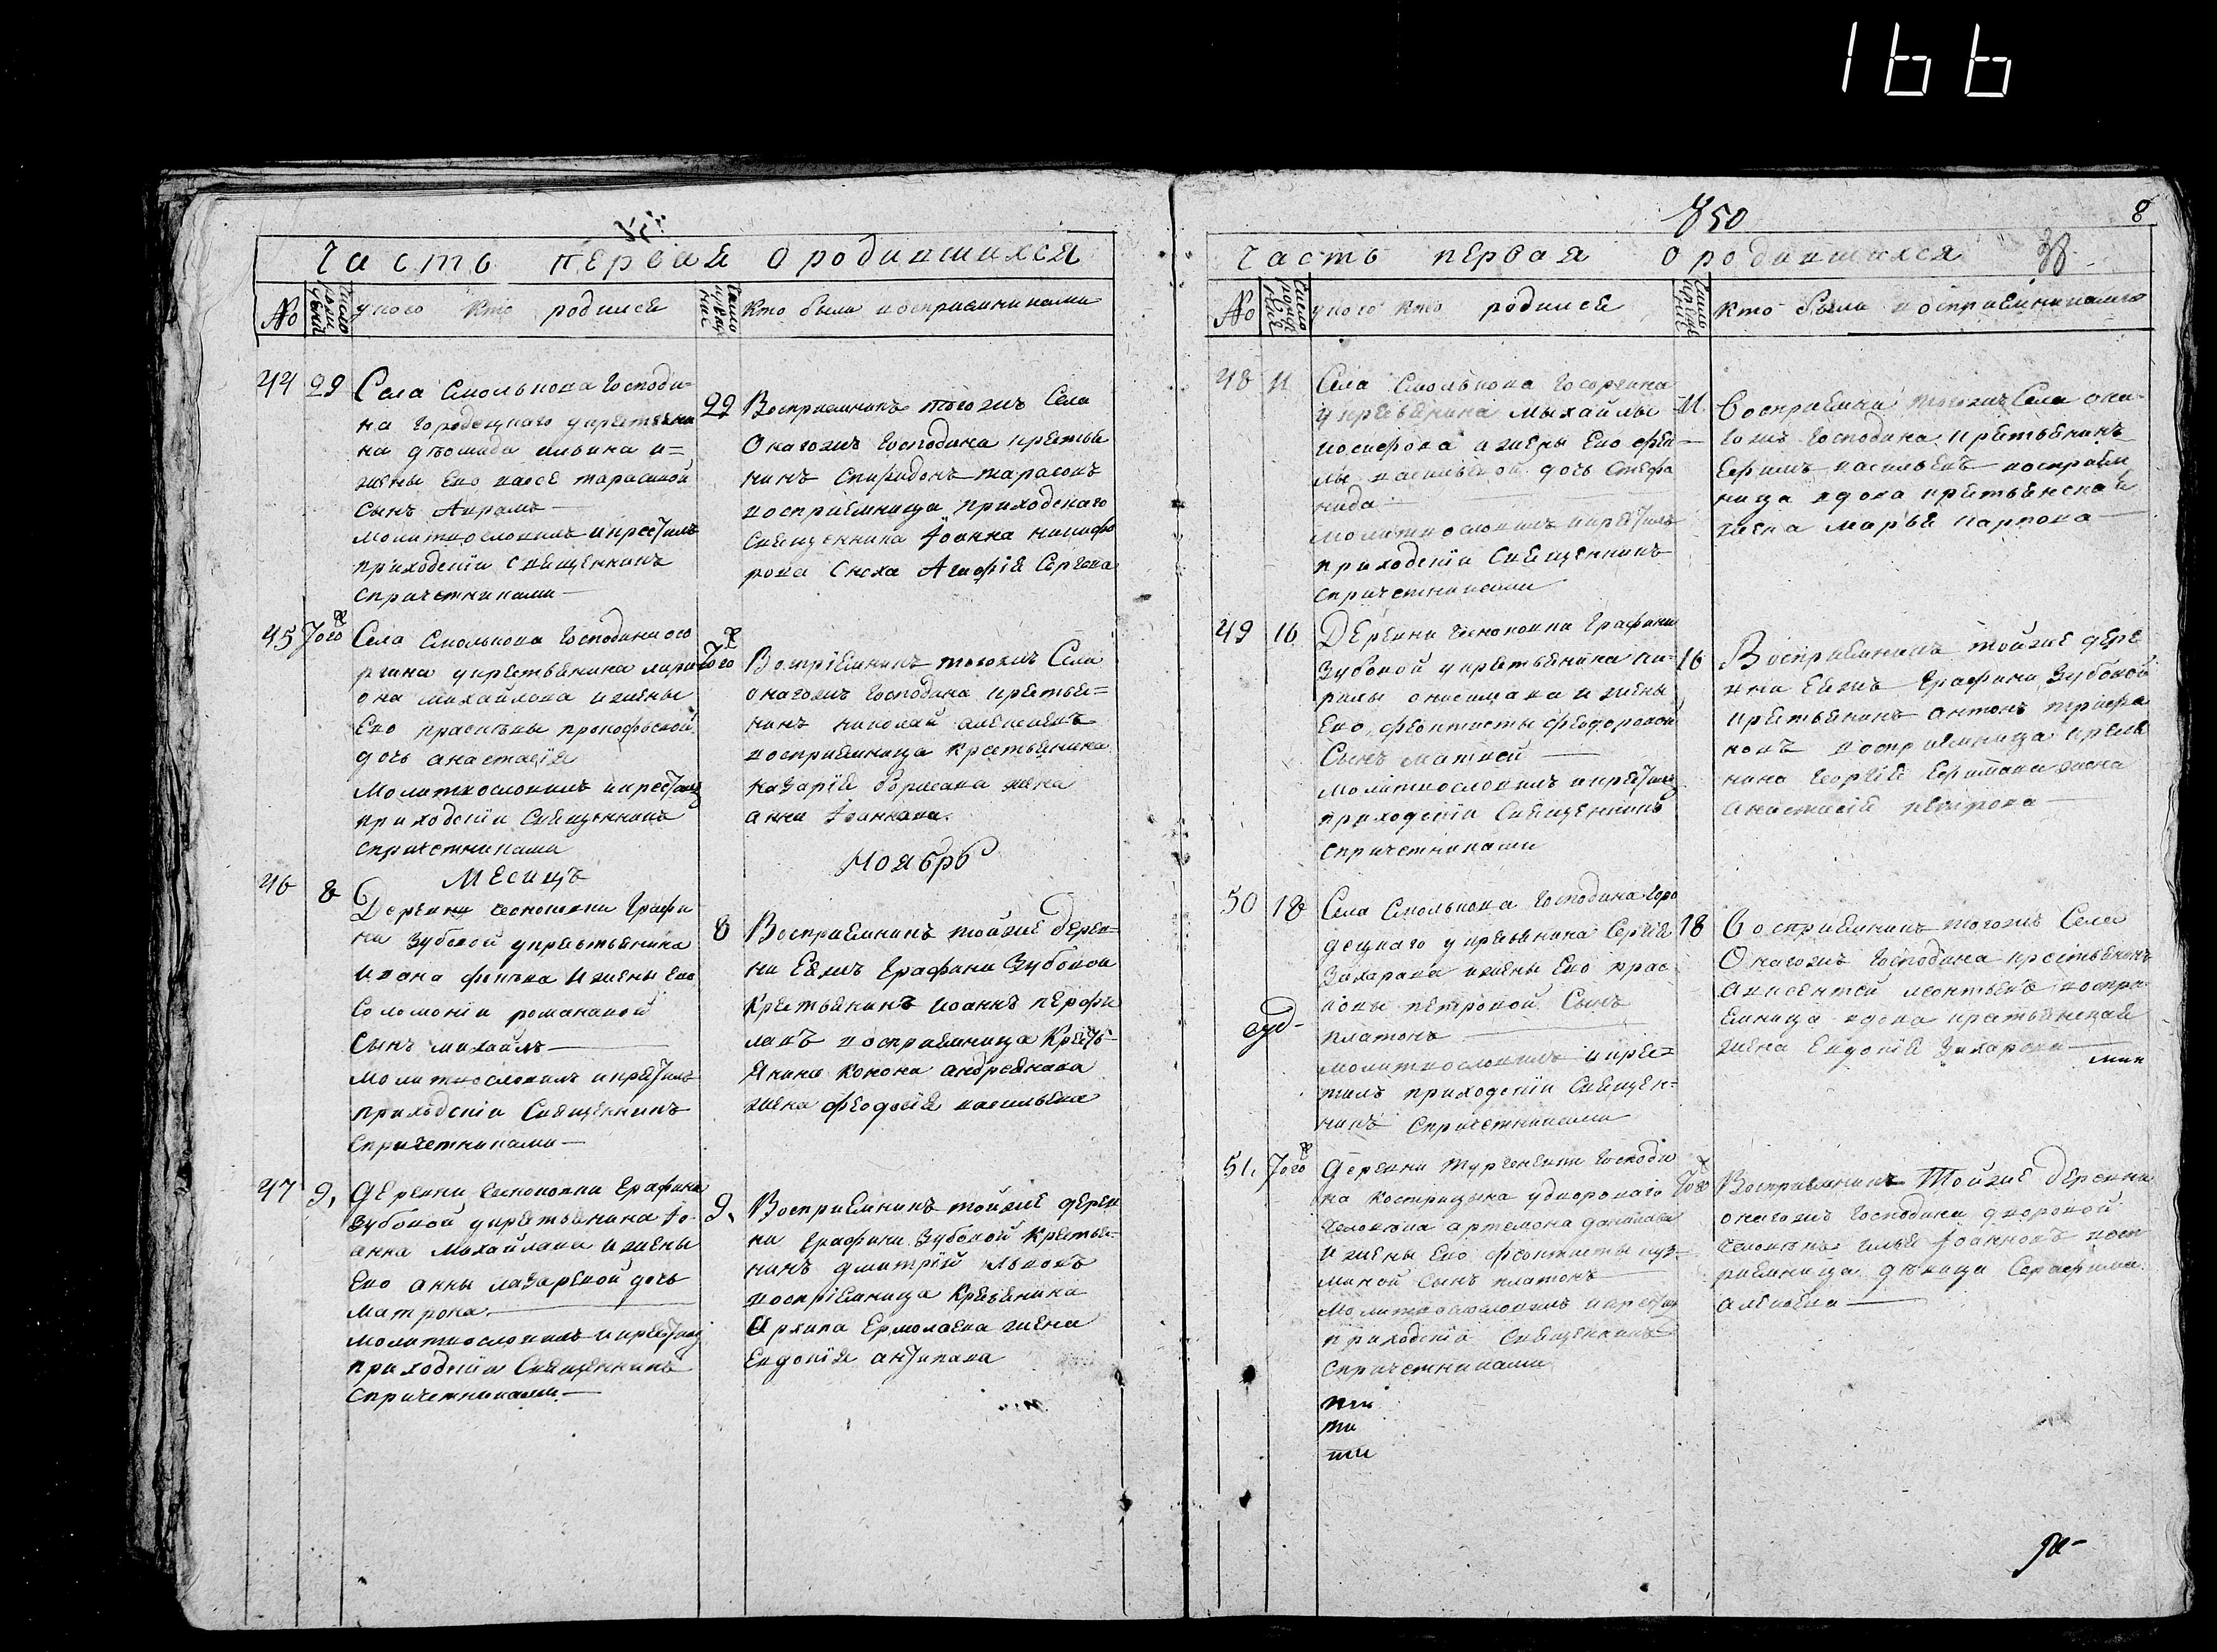 166
850
8
Часть первая о родившихся
№
число рожденій
у кого кто родился
число крещеніе
кто были восприемниками
44 29
Села Смолькова Господи=
на Городецкаго у крестьяни
на дѣомида ильина и=
жены Его таисе тарасовой
сынъ Аврамъ
молитвословилъ и крестилъ
приходскій священникъ
спричетниками
29
Восприемникъ тогожъ Села
Онагожъ Господина крестья
нинъ спиридонъ тарасовъ
восприемница приходскаго
священника Іоанна никифо
рова сноха Агафія Сергева
45 Того ж
Села Смолькова Господина
ргина у крестьянина
она михайлова и жены
Его прасковьи прокофьевой
дочь анастасія
Молитвословилъ и крестилъ
приходскій священникъ
спричетниками
Того ж
Воспріемникъ тогожъ Села
онагожъ Господина крестья=
нинъ николай алексѣевъ
восприемница крестьянина
назарія борисова жена
анна Іоаннова.
Месяцъ Ноябрь
46 8
Деревни чесноковки Графи
ни Зубовой у крестьянина
Ивана фокѣва И жены Его
Соломоніи романовой
Сынъ михайлъ
Молитвословилъ и крестилъ
приходскій Священникъ
спричетниками
8
Восприемникъ тойже дерев=
ни Еяжъ Графини Зубовой
Крестьянинъ иоаннъ перфи
ловъ восприемница Кресть
янина Конона андреянова
жена феодосія васильева
47 9.
Деревни чесноковки Графини
Зубовой у крестьянина Іо
анна Михайлова и жены
Его анны лазаревой дочь
матрона.
молитвословилъ и крестилъ
приходскій Священникъ
спричетниками
9.
Восприемникъ тойже дерев
ни Графини Зубовой Крестья=
нинъ дмитрій львовъ
воспріемница Крестьянина
Архипа Ермолаева жена
Евдокія антипова
Часть первая о родившихся
№
у кого кто родился
кто были восприемниками
48 11
Села Смолькова Госоргина
у крестьянина михайлы
иосифова и жены Его фек=
лы васильевой дочь Стефа
нида
молитвословилъ и крестилъ
приходскій Священникъ
спричетниками
11.
Восприемникъ тогожъ Села она=
гожъ Господина крестьянинъ
Ефимъ васильевъ восприем
ница вдова крестьянская
жена марья карпова
49 16
Деревни чесноковки Графини
Зубовой у крестьянина ки=
рилы онисимова и жены
Его феоктисты феодоровой
Сынъ матвей
молитвословилъ и крестилъ
приходскій Священникъ
спричетниками
16
Восприемникъ тойже дере
вни Еяжъ Графини Зубовой
крестьянинъ антонъ
восприемница
нина георгія
анастасія петрова
50 18
Села Смолькова Господина Горо
децкаго у крестьянина Сергія
Захарова и жены Его прас
ковьи петровой Сынъ
платонъ
молитвословилъ и крес=
тилъ приходскій Священ=
никъ спричетниками
18
Восприемникъ тогожъ Села
Онагожъ Господина крестьянинъ
авксентей леонтьевъ воспри
емница вдова крестьянская
жена Евдокія Захарова
51. Того ж
Деревни тургеневки Господи
на кострицына у двороваго
человѣка артемона данилова
и жены Его феоктисты куз=
миной сынъ платонъ
молитвословилъ и крестилъ
приходскій священникъ
спричетниками
Того ж
Восприемникъ Тойже деревни
онагожъ Господина дворовой
человѣкъ илья Іоанновъ восп
риемница дѣвица Серафима
алексѣева